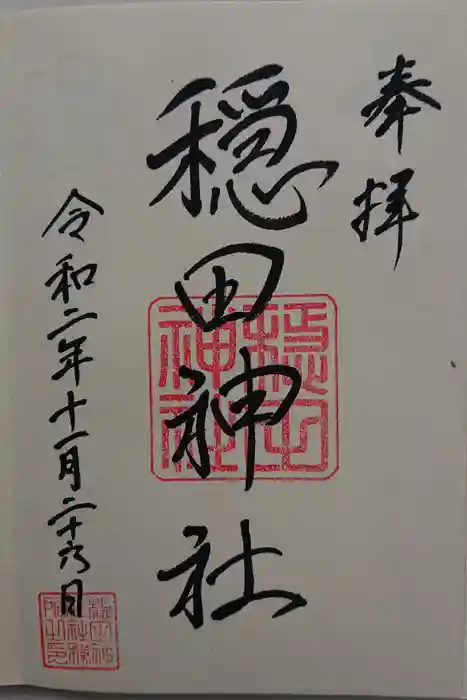 奉拝
穏田神社
穏田神社
令和二年十一月二十六日